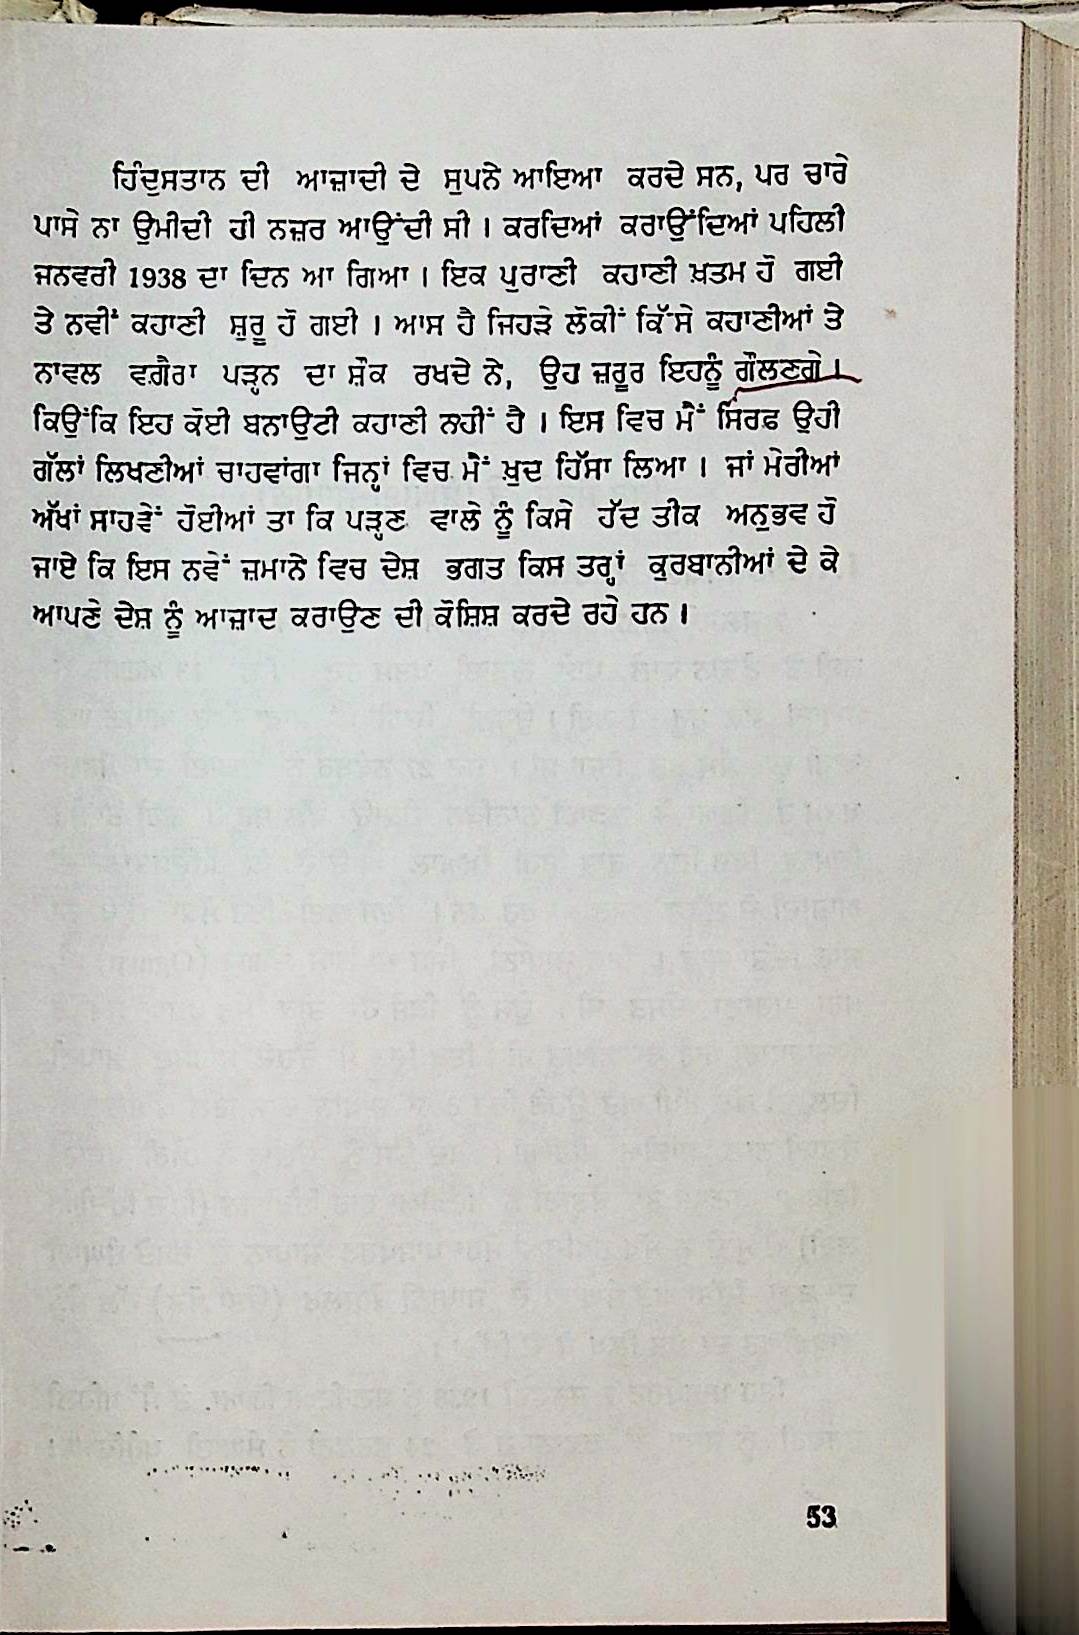 ਹਿੰਦੁਸਤਾਨ ਦੀ ਆਜ਼ਾਦੀ ਦੇ ਸੁਪਨੇ ਆਇਆ ਕਰਦੇ ਸਨ, ਪਰ ਚਾਰੇ
ਪਾਸੇ ਨਾ ਉਮੀਦੀ ਹੀ ਨਜ਼ਰ ਆਉਂਦੀ ਸੀ । ਕਰਦਿਆਂ ਕਰਾਉਂਦਿਆਂ ਪਹਿਲੀ
ਜਨਵਰੀ 1938 ਦਾ ਦਿਨ ਆ ਗਿਆ । ਇਕ ਪੁਰਾਣੀ ਕਹਾਣੀ ਖ਼ਤਮ ਹੋ ਗਈ
ਤੇ ਨਵੀਂ ਕਹਾਣੀ ਸ਼ੁਰੂ ਹੋ ਗਈ । ਆਸ ਹੈ ਜਿਹੜੇ ਲੋਕੀਂ ਕਿੱਸੇ ਕਹਾਣੀਆਂ ਤੇ
ਨਾਵਲ ਵਗ਼ੈਰਾ ਪੜ੍ਹਨ ਦਾ ਸ਼ੌਕ ਰਖਦੇ ਨੇ, ਉਹ ਜ਼ਰੂਰ ਇਹਨੂੰ ਗੌਲਣਗੇ ।
ਕਿਉਂਕਿ ਇਹ ਕੋਈ ਬਨਾਉਟੀ ਕਹਾਣੀ ਨਹੀਂ ਹੈ । ਇਸ ਵਿਚ ਮੈਂ ਸਿਰਫ਼ ਉਹੀ
ਗੱਲਾਂ ਲਿਖਣੀਆਂ ਚਾਹਵਾਂਗਾ ਜਿਨ੍ਹਾਂ ਵਿਚ ਮੈਂ ਖ਼ੁਦ ਹਿੱਸਾ ਲਿਆ । ਜਾਂ ਮੇਰੀਆਂ
ਅੱਖਾਂ ਸਾਹਵੇਂ ਹੋਈਆਂ ਤਾ ਕਿ ਪੜ੍ਹਣ ਵਾਲੇ ਨੂੰ ਕਿਸੇ ਹੱਦ ਤੀਕ ਅਨੁਭਵ ਹੋ
ਜਾਏ ਕਿ ਇਸ ਨਵੇਂ ਜ਼ਮਾਨੇ ਵਿਚ ਦੇਸ਼ ਭਗਤ ਕਿਸ ਤਰ੍ਹਾਂ ਕੁਰਬਾਨੀਆਂ ਦੇ ਕੇ
ਆਪਣੇ ਦੇਸ਼ ਨੂੰ ਆਜ਼ਾਦ ਕਰਾਉਣ ਦੀ ਕੋਸ਼ਿਸ਼ ਕਰਦੇ ਰਹੇ ਹਨ ।
53